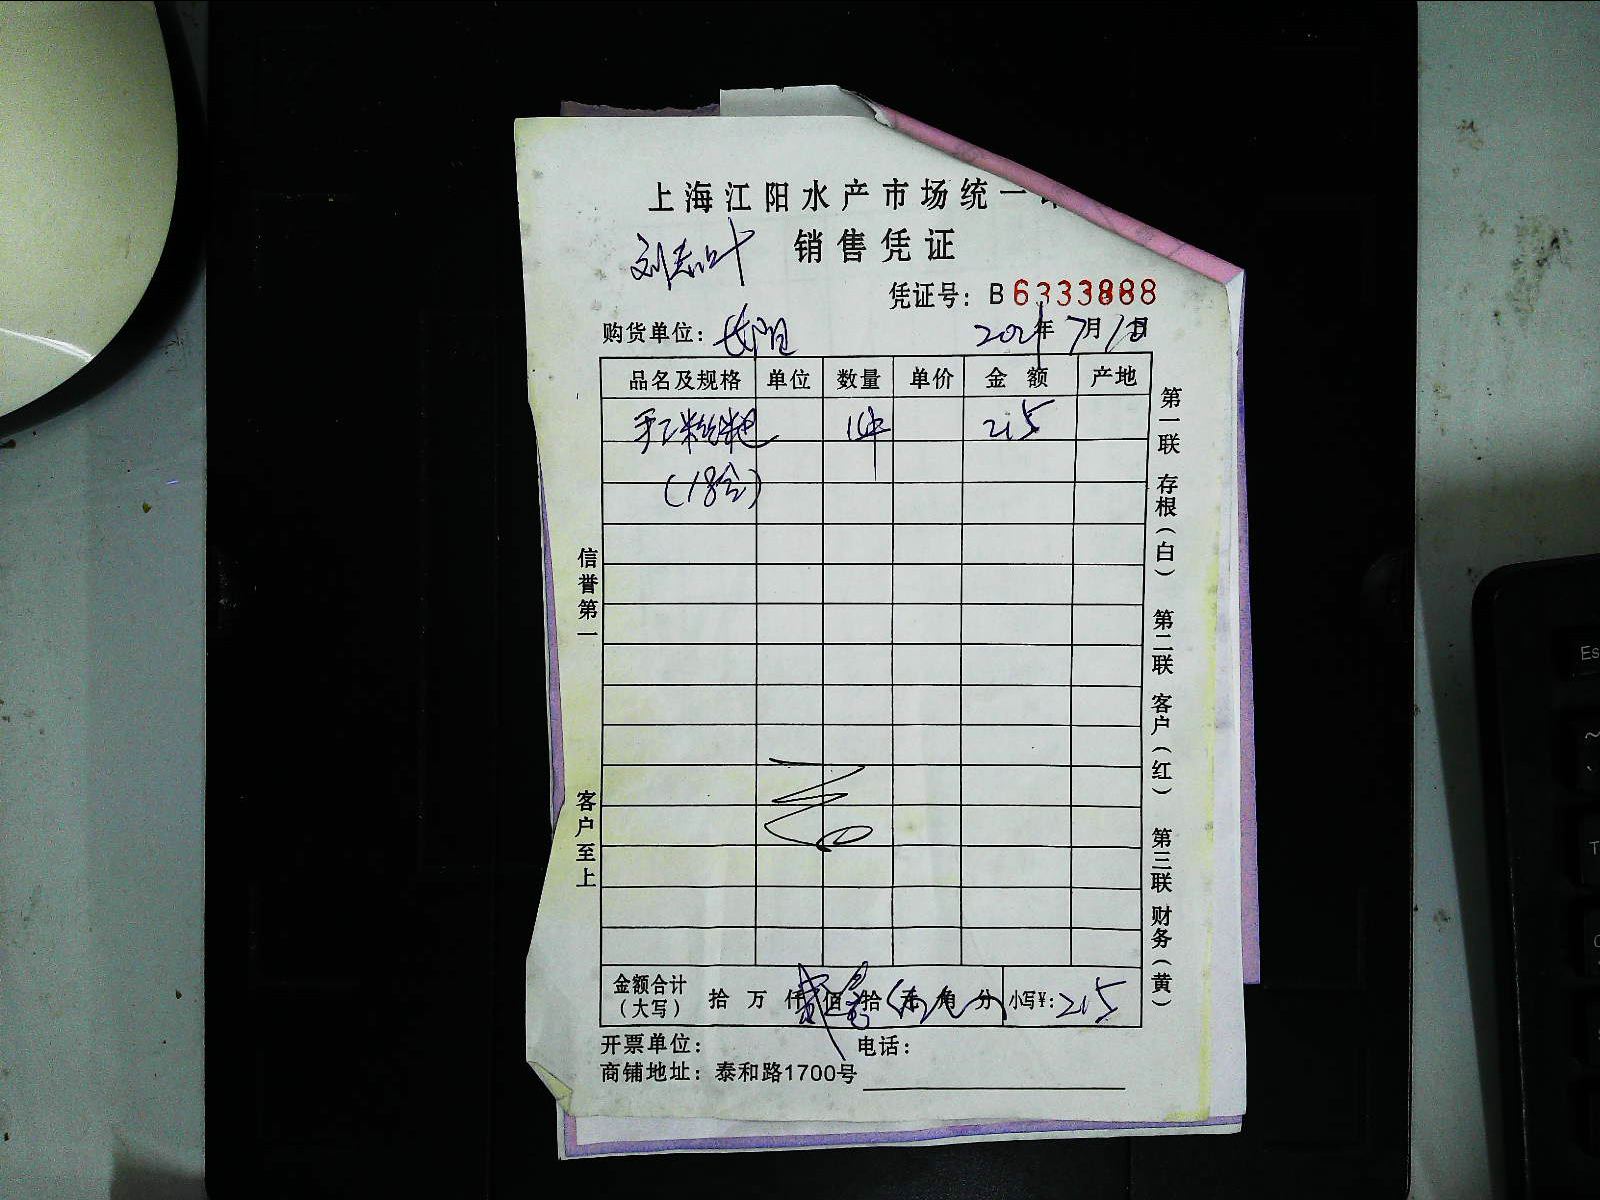 上海江阳水产市场统一
销售凭证
凭证号：B 6333888
购货单位：长阳 2021年7月10日
品名及规格 单位 数量 单价 金额 产地
手工粉丝 1件 215
(18合)
信誉第一
客户至上
第一联 存根（白） 第二联 客户（红） 第三联 财务（黄）
金额合计（大写） 拾 万 仟 佰 拾 元 角 分 小写¥：215
开票单位： 电话：
商铺地址：泰和路1700号
Es
~